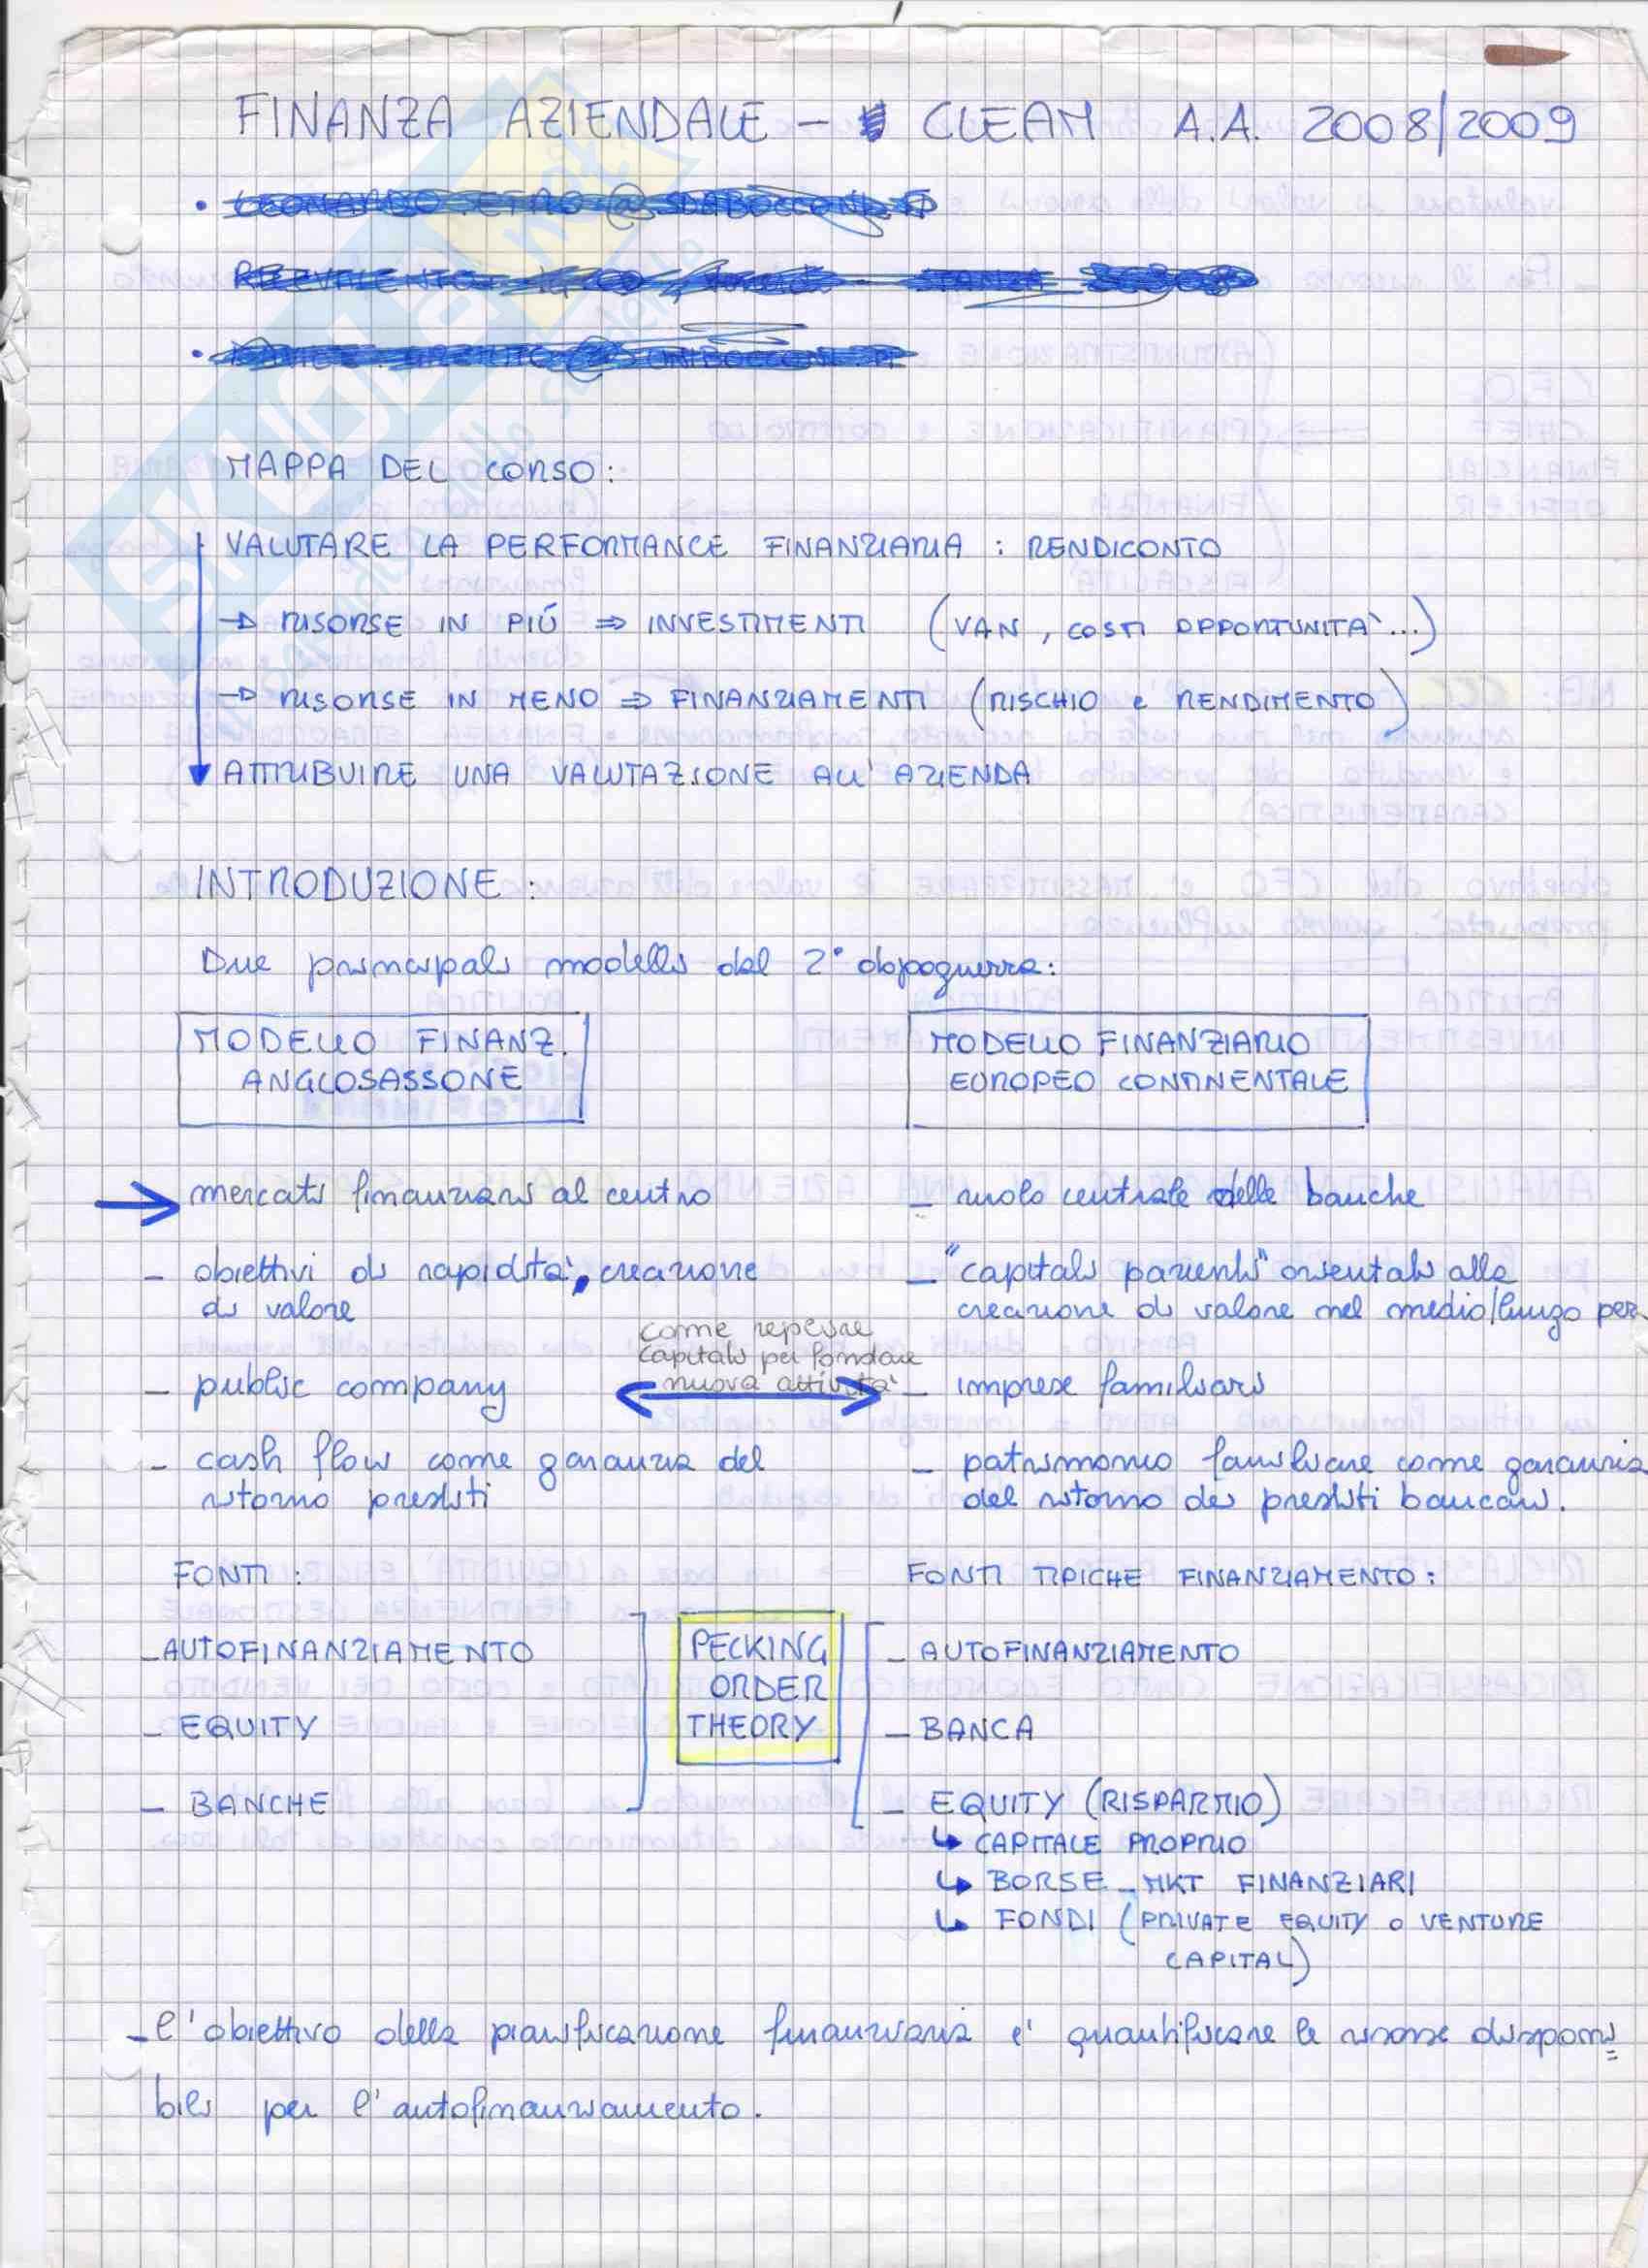 FINANZA AZIENDALE - CLEAM A.A. 2008/2009
MAPPA DEL CORSO:
VALUTARE LA PERFORMANCE FINANZIARIA : RENDICONTO
→ RISORSE IN PIÚ ⇒ INVESTIMENTI (VAN, COSTI OPPORTUNITA'...)
→ RISORSE IN MENO ⇒ FINANZIAMENTI (RISCHIO e RENDIMENTO)
ATTRIBUIRE UNA VALUTAZIONE ALL'AZIENDA
INTRODUZIONE :
Due principali modelli dal 2° dopoguerra:
MODELLO FINANZ.
ANGLOSASSONE
MODELLO FINANZIARIO
EUROPEO CONTINENTALE
→ mercati finanziari al centro
- ruolo centrale delle banche
- obiettivi di rapidità, creazione
di valore
- "capitali pazienti" orientati alla
creazione di valore nel medio/lungo per.
come reperire
capitali per fondare
nuova attività
- public company
- imprese familiari
- cash flow come garanzia del
ritorno prestiti
- patrimonio familiare come garanzia
del ritorno dei prestiti bancari.
FONTI :
- AUTOFINANZIAMENTO
- EQUITY
- BANCHE
PECKING
ORDER
THEORY
FONTI TIPICHE FINANZIAMENTO :
- AUTOFINANZIAMENTO
- BANCA
- EQUITY (RISPARMIO)
↳ CAPITALE PROPRIO
↳ BORSE - MKT FINANZIARI
↳ FONDI (PRIVATE EQUITY o VENTURE
CAPITAL)
- l'obiettivo della pianificazione finanziaria e' quantificare le risorse disponi=
bili per l'autofinanziamento.